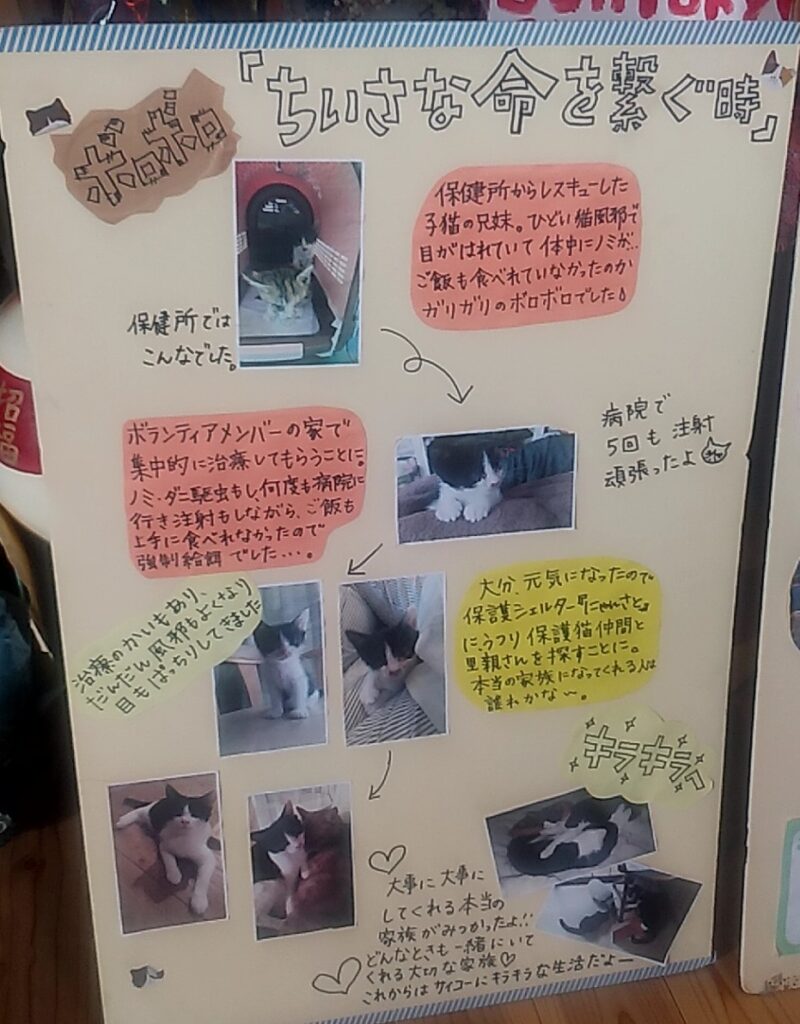 「ちいさな命を繋ぐ時」
ボロボロ
保健所からレスキューした
子猫の兄妹。ひどい猫風邪で
目がはれていて体中にノミが…
ご飯も食べれていなかったのか
ガリガリのボロボロでした
保健所では
こんなでした。
病院で
5回も注射
頑張ったよ
ボランティアメンバーの家で
集中的に治療してもらうことに。
ノミ・ダニ駆虫もし、何度も病院に
行き注射もしながら、ご飯も
上手に食べれなかったので
強制給餌でした…。
治療のかいもあり、
だんだん風邪もよくなり
目もぱっちりしてきました
大分、元気になったので
保護シェルター『にゃんさと』
に、うつり保護猫仲間と
里親さんを探すことに。
本当の家族になってくれる人は
誰れかな〜。
キラキラ
大事に大事に
してくれる本当の
家族がみつかったよ!!
どんなときも一緒にいて
くれる大切な家族♡
これからはサイコーにキラキラな生活だよー
招
福